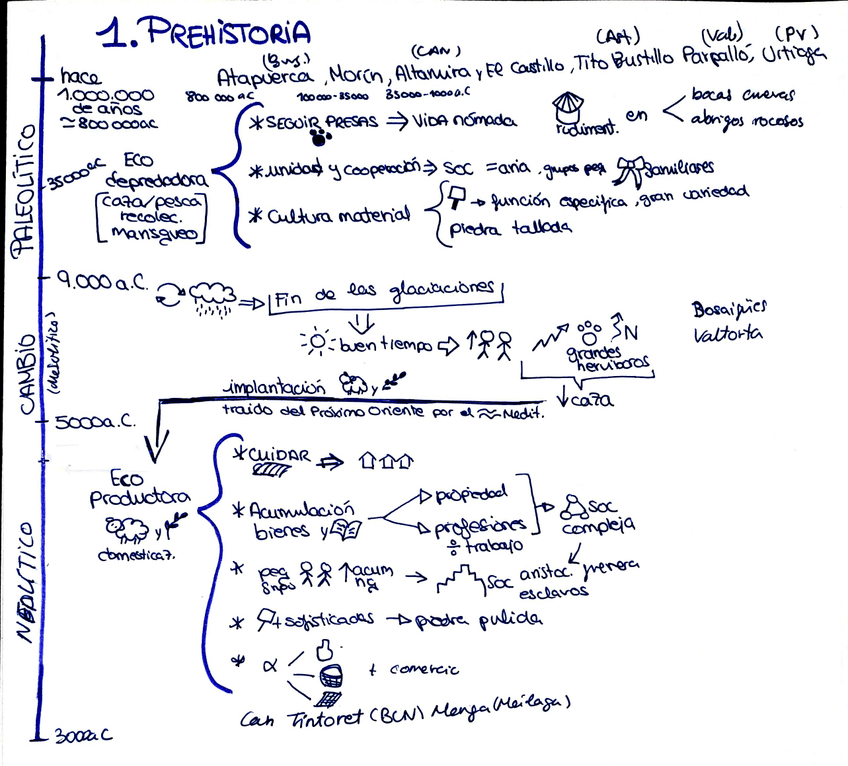 1. PREHISTORIA
(Bur) (CAN) (Ast) (Val) (PV)
Atapuerca, Morín, Altamira y El Castillo, Tito Bustillo Parpalló, Urtiaga
800 000 aC 100000-35000 35000-1000a.C
hace
1.000.000
de años
≃800 000aC
PALEOLÍTICO
35000aC
Eco
depredadora
caza/pesca
recolec.
marisqueo
* SEGUIR PRESAS ⇒ VIDA nómada
rudiment. en
bocas cuevas
abrigos rocosos
* unidad y cooperación ⇒ Soc =aria, grupos peq familiares
* Cultura material
→ función específica, gran variedad
piedra tallada
9.000 a.C.
⇒ Fin de las glaciaciones
CAMBIO
(Mesolítico)
buen tiempo ⇒ ↑
N
grandes
herviboros
↓caza
Valtorta
implantación y
traido del Próximo Oriente por el ≈ Medit.
5000a.C.
NEOLÍTICO
Eco
Productora
y
domesticaz.
* CUIDAR ⇒
* Acumulación
bienes y
▷ propiedad
▷ profesiones
÷ trabajo
Soc
compleja
* peq
grupo ↑acum
→ Soc aristoc.
esclavos
* + sofisticadas → piedra pulida
* α + comercio
Can Tintoret (BCN) Menga (Málaga)
3000a.C